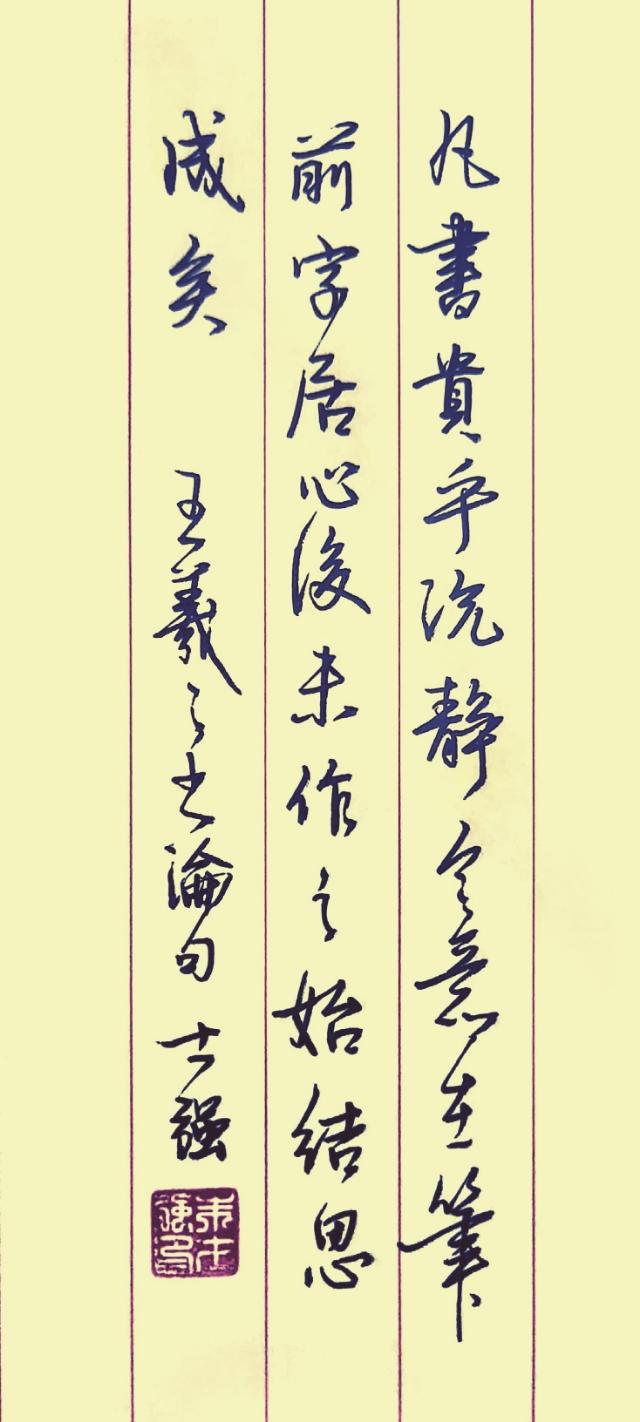 凡書貴乎沉靜令意在筆
前字居心後未作之始結思
成矣 王羲之书論句 士强